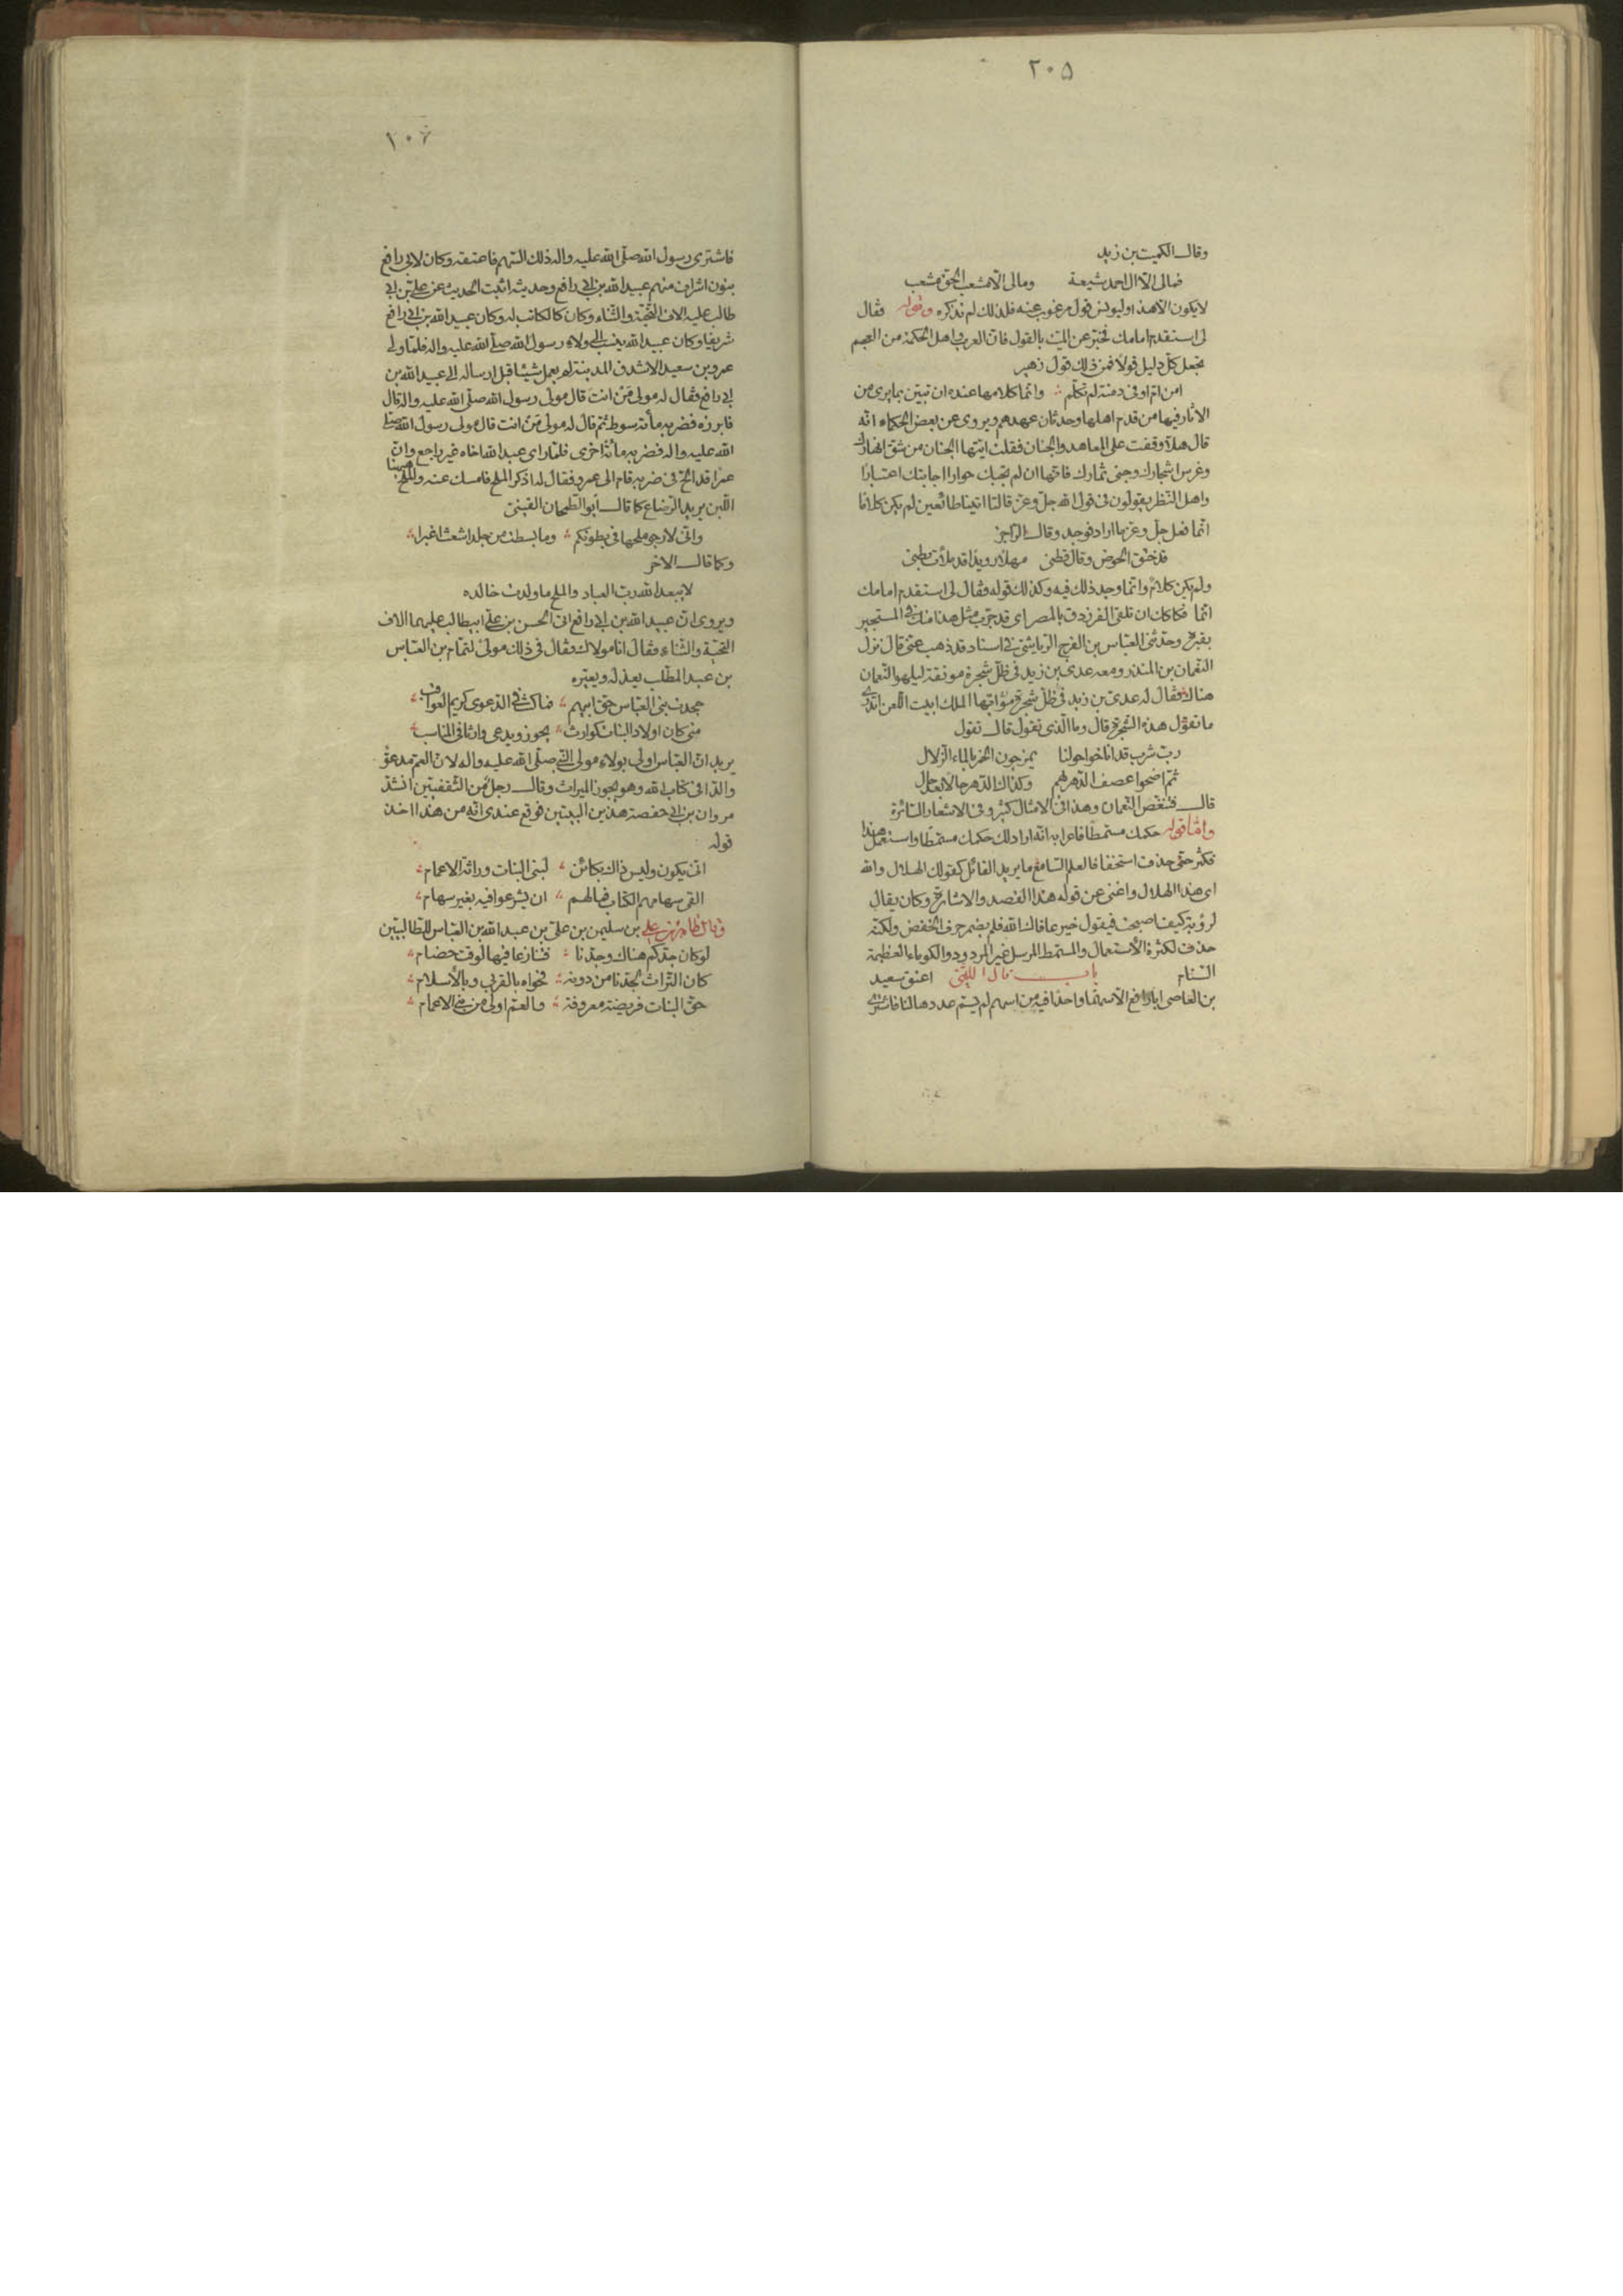 ٢٠٥
وقال الكميت بن زيد
فمالى الا ال احمد شيعة ومالى الا مشعب الحق مشعب
لا يكون الا هذا وليونس قول مرغوب عنه فلذلك لم نذكره وقوله فقال
لى استقدم امامك تخبر عن الميت بالقول فان العرب واهل الحكمة من العجم
تجعل كل دليل قولا فمن ذلك قول زهير
امن ام اوفى دمنة لم تكلم وانما كلامها عنده ان تبين بما يرى من
الاثار فيها من قدم اهلها وحدثان عهدهم ويروى عن بعض الحكماء انه
قال هلا وقفت على المعاهد والجنان فقلت ايتها الجنان من شق انهارك
وغرس اشجارك وجنى ثمارك فانها ان لم تجبك حوارا اجابتك اعتبارا
واهل النظر يقولون فى قول الله جل وعز قالتا اتينا طائعين لم يكن كلاما
انما فعل جل وعز ما اراد فوجد وقال الراجز
قد خنق الحوض وقال قطنى مهلا رويدا قد ملأت بطنى
ولم يكن كلام وانما وجد ذلك فيه وكذلك قوله فقال لى استقدم امامك
انما فكاكك ان تلقى الفرزدق بالمصر اى قد جرب مثل هذا منك فى المستجير
بقبره وحدثنى العباس بن الفرج الرياشى فى اسناد قد ذهب عنى قال نزل
النعمان بن المنذر ومعه عدى بن زيد فى ظل شجرة مونقة ليلهو النعمان
هناك فقال له عدى بن زيد فى ظل شجرة مونقة ايها الملك ابيت اللعن اتدرى
ما تقول هذه الشجرة قال وما الذى تقول قال تقول
رب شرب قد اناخوا حولنا يمزجون الخمر بالماء الزلال
ثم اضحوا عصف الدهر بهم وكذاك الدهر حالا بعد حال
قال فتنغص النعمان وهذا فى الامثال كثير وفى الاشعار السائرة
واما قوله حكمك مستمطا فاعرابه انه اراد لك حكمك مستمطا واستعمل هذا
فكثر حتى حذف استخفافا لعلم السامع ما يريد القائل كقولك الهلال والله
اى هذا الهلال واغنى عن قوله هذا القصد والاشارة وكان يقال
لرؤبة كيف اصبحت فيقول خير عافاك الله فلم يضمر حرف الخفض ولكنه
حذف لكثرة الاستعمال والمستمط المرسل غير المردود والكوماء العظيمة
السنام باب قال الليثى اعتق سعيد
بن العاصى ابا رافع الا سهما واحدا فيه من اسهم لم يسم عددها لنا فاشترى
١٠٦
فاشترى رسول الله صلى الله عليه واله ذلك السهم فاعتقه وكان لابى رافع
بنون اشراف منهم عبيد الله بن ابى رافع وحديثه اثبت الحديث عن على بن ابى
طالب عليه الاف التحية والثناء وكان كالكاتب له وكان عبيد الله بن ابى رافع
شريفا وكان عبيد الله ينسب الى ولاء رسول الله صلى الله عليه واله فلما ولى
عمرو بن سعيد الاشدق المدينة لم يعمل شيئا قبل ارساله الى عبيد الله بن
ابى رافع فقال له مولى من انت قال مولى رسول الله صلى الله عليه واله قال
فابرزه فضربه مأة سوط ثم قال له مولى من انت قال مولى رسول الله صلى
الله عليه واله فضربه مأة اخرى فلما راى عبد الله اخاه غير راجع وان
عمرا قد الح فى ضربه قام الى عمرو فقال له اذكر الملح فامسك عنه والملح ههنا
اللبن يريد الرضاع كما قال ابو الطمحان القينى
وانى لارجو ملحها فى بطونكم وما بسطت من جلد اشعث اغبرا
وكما قال الاخر
لا يبعد الله رب العباد والملح ما ولدت خالده
ويروى ان عبيد الله بن ابى رافع اتى الحسن بن على ابيطالب عليهما الاف
التحية والثناء فقال انا مولاك فقال فى ذلك مولى لتمام بن العباس
بن عبد المطلب يعذله ويعيره
جحدت بنى العباس حق ابيهم فما كنت فى الدعوى كريم العواقب
متى كان اولاد البنات كوارث يحوز ويدعى والدا فى المناسب
يريد ان العباس اولى بولاء مولى النبى صلى الله عليه واله لان العم مدعو
والدا فى كتاب الله وهو يحوز الميراث وقال رجل من الثقفيين انشد
مروان بن ابى حفصة هذين البيتين فوقع عندى انه من هذا اخذ
قوله
انى يكون وليس ذاك بكائن لبنى البنات وراثة الاعمام
القى سهامهم الكتاب فمالهم ان يشرعوا فيه بغير سهام
وقال طاهر بن على بن سليمن بن على بن عبد الله بن العباس للطالبيين
لو كان جدكم هناك وجدنا فتنازعا فيها لوقت خصام
كان التراث لجدنا من دونه فحواه بالقربى وبالاسلام
حق البنات فريضة معروفة والعم اولى من بنى الاعمام